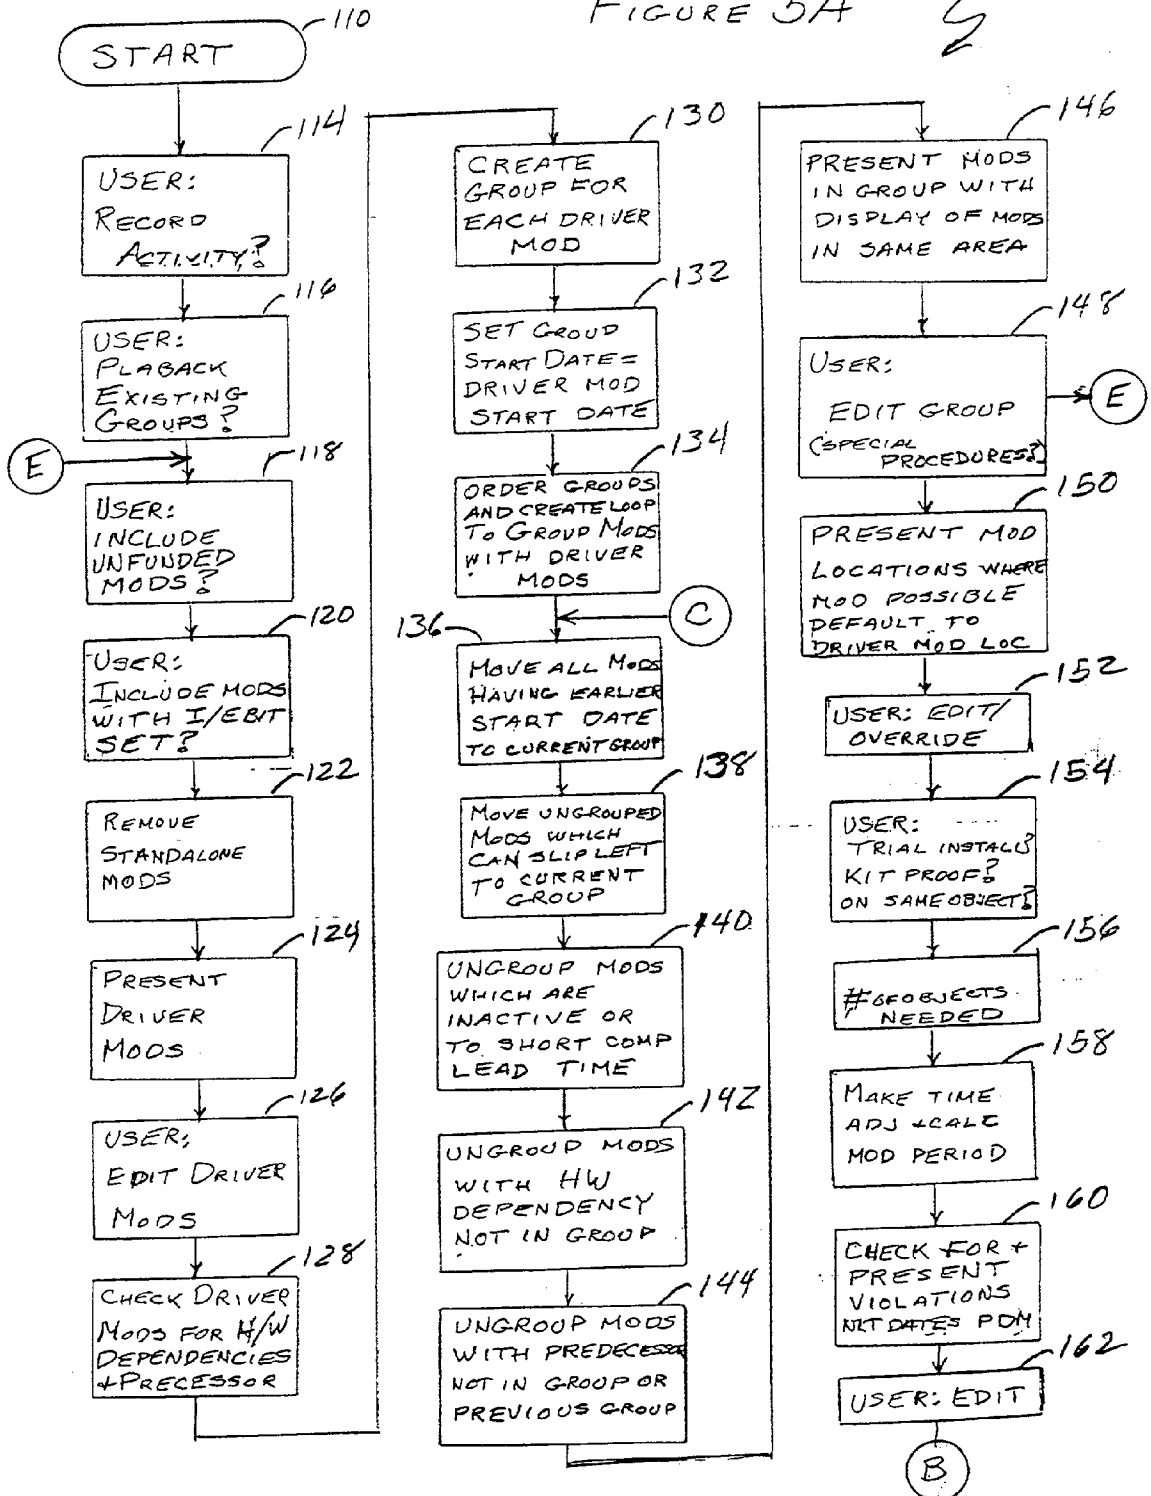 FIGURE 5A
110
START
114
USER:
RECORD
ACTIVITY?
116
USER:
PLABACK
EXISTING
GROUPS?
E
118
USER:
INCLUDE
UNFUNDED
MODS?
120
USER:
INCLUDE MODS
WITH I/EBIT
SET?
122
REMOVE
STANDALONE
MODS
124
PRESENT
DRIVER
MODS
126
USER:
EDIT DRIVER
MODS
128
CHECK DRIVER
MODS FOR H/W
DEPENDENCIES
+PRECESSOR
130
CREATE
GROUP FOR
EACH DRIVER
MOD
132
SET GROUD
START DATE=
DRIVER MOD
START DATE
134
ORDER GROUPS
AND CREATE LOOP
TO GROUP MODS
WITH DRIVER
MODS
C
136
MOVE ALL MODS
HAVING EARLIER
START DATE
TO CURRENT GROUP
138
MOVE UNGROUPED
MODS WHICH
CAN SLIP LEFT
TO CURRENT
GROUP
140
UNGROUP MODS
WHICH ARE
INACTIVE OR
TO SHORT COMP
LEAD TIME
142
UNGROUP MODS
WITH HW
DEPENDENCY
NOT IN GROUP
144
UNGROUP MODS
WITH PREDECESSOR
NOT IN GROUP OR
PREVIOUS GROUP
146
PRESENT MODS
IN GROUP WITH
DISPLAY OF MODS
IN SAME AREA
148
USER:
EDIT GROUP
(SPECIAL
PROCEDURES?)
E
150
PRESENT MOD
LOCATIONS WHERE
MOD POSSIBLE
DEFAULT TO
DRIVER MOD LOC
152
USER: EDIT/
OVERRIDE
154
USER:
TRIAL INSTALL?
KIT PROOF?
ON SAME OBJECT?
156
# OF OBJECTS
NEEDED
158
MAKE TIME
ADJ + CALC
MOD PERIOD
160
CHECK FOR +
PRESENT
VIOLATIONS
NLT DATES PDM
162
USER: EDIT
B